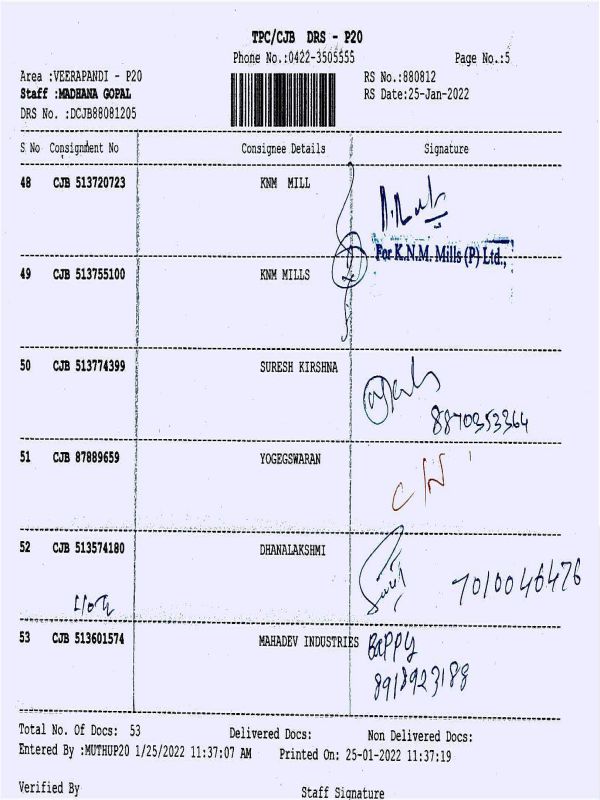 TPC/CJB DRS - P20
Phone No.:0422-3505555 Page No.:5
Area :VEERAPANDI - P20 RS No.:880812
Staff :MADHANA GOPAL RS Date:25-Jan-2022
DRS No. :DCJB88081205
S No Consignment No Consignee Details Signature
48 CJB 513720723 KNM MILL
For K.N.M. Mills (P) Ltd.,
49 CJB 513755100 KNM MILLS
50 CJB 513774399 SURESH KIRSHNA
8870353364
51 CJB 87889659 YOGEGSWARAN
C/N
52 CJB 513574180 DHANALAKSHMI
7010046476
53 CJB 513601574 MAHADEV INDUSTRIES BAPPY
8918923188
Total No. Of Docs: 53 Delivered Docs: Non Delivered Docs:
Entered By :MUTHUP20 1/25/2022 11:37:07 AM Printed On: 25-01-2022 11:37:19
Verified By Staff Signature